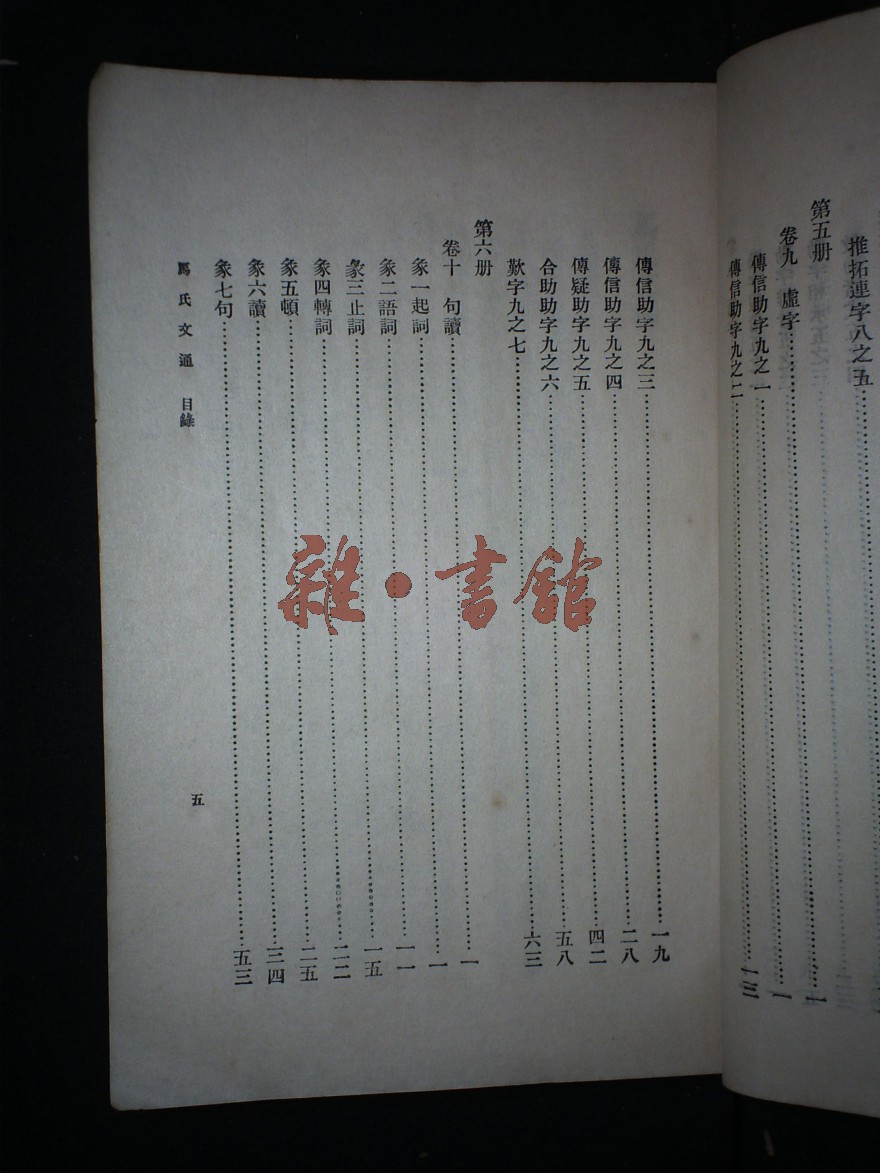 推拓連字八之五
第五册
卷九 虛字
傳信助字九之一
傳信助字九之二
傳信助字九之三 一九
傳信助字九之四 二八
傳疑助字九之五 四二
合助助字九之六 五八
歎字九之七 六三
第六册
卷十 句讀 一
彖一起詞 一
彖二語詞 一一
彖三止詞 一五
彖四轉詞 二二
彖五頓 二五
彖六讀 三四
彖七句 五三
馬氏文通 目錄
五
雜·書館